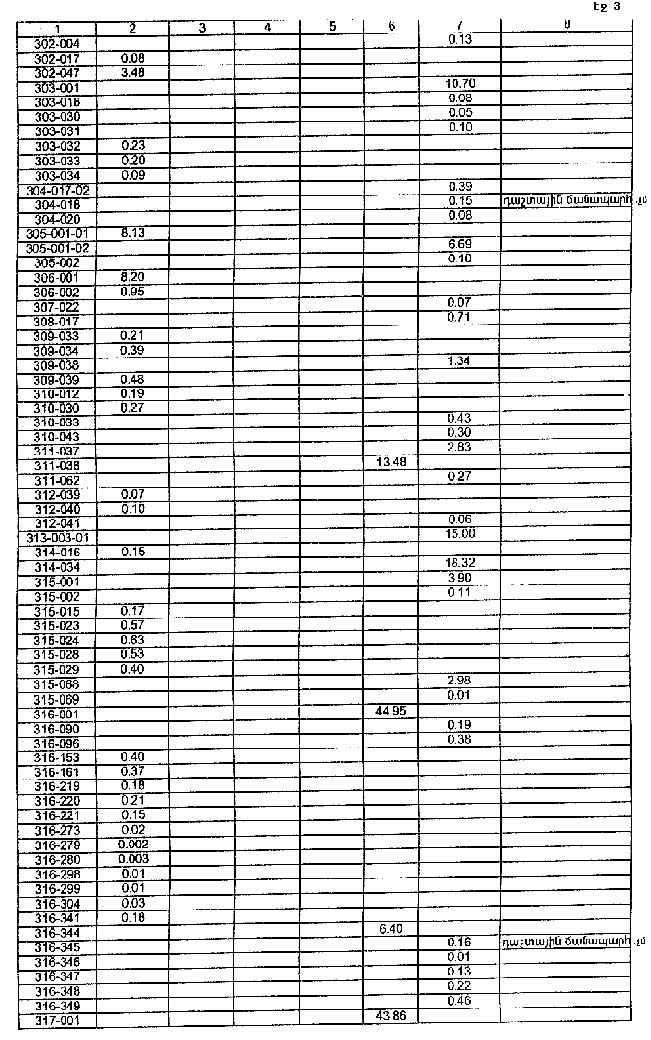 Էջ 3
1 2 3 4 5 6 7 8
302-004 0.13
302-017 0.08
302-047 3.48
303-001 10.70
303-018 0.08
303-030 0.05
303-031 0.10
303-032 0.23
303-033 0.20
303-034 0.09
304-017-02 0.39
304-018 0.15 դաշտային ճանապարհ
304-020 0.08
305-001-01 8.13
305-001-02 6.69
305-002 0.10
306-001 8.20
306-002 0.95
307-022 0.07
308-017 0.71
309-033 0.21
309-034 0.39
309-038 1.34
309-039 0.48
310-012 0.19
310-030 0.27
310-033 0.43
310-043 0.30
311-037 2.83
311-038 13.48
311-062 0.27
312-039 0.07
312-040 0.10
312-041 0.06
313-003-01 15.00
314-016 0.15
314-034 18.32
315-001 3.90
315-002 0.11
315-015 0.17
315-023 0.57
315-024 0.83
315-028 0.53
315-029 0.40
315-068 2.98
315-069 0.01
316-001 44.95
316-090 0.19
316-096 0.38
316-153 0.40
316-161 0.37
316-219 0.18
316-220 0.21
316-221 0.15
316-273 0.02
316-279 0.002
316-280 0.003
316-298 0.01
316-299 0.01
316-304 0.03
316-341 0.18
316-344 6.40
316-345 0.16 դաշտային ճանապարհ
316-346 0.01
316-347 0.13
316-348 0.22
316-349 0.46
317-001 43.86